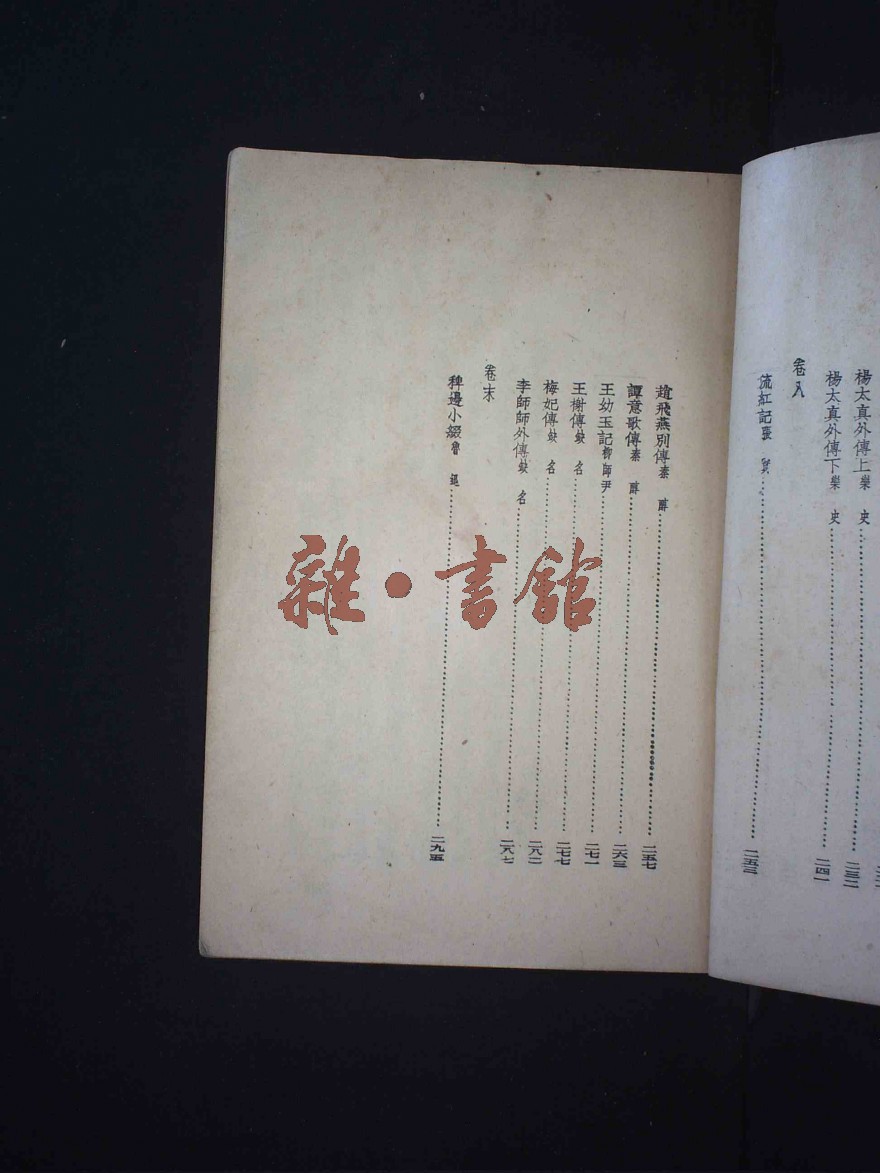 楊太真外傳上 樂史 二三一
楊太真外傳下 樂史 二四一
卷八
流紅記 張實 二五三
趙飛燕別傳 秦醇 二五七
譚意歌傳 秦醇 二六三
王幼玉記 柳師尹 二七一
王榭傳 缺名 二七七
梅妃傳 缺名 二八一
李師師外傳 缺名 二八七
卷末
稗邊小綴 魯迅 二九五
雜·書館